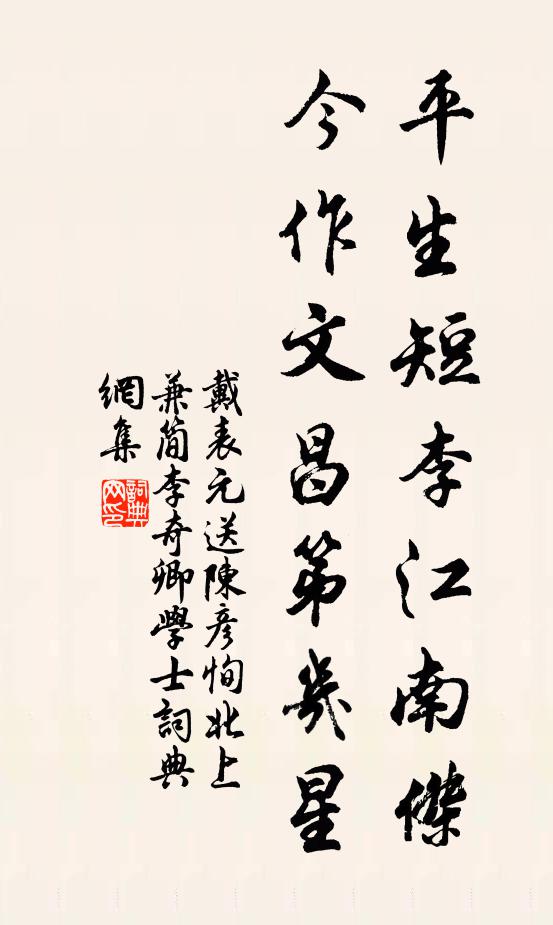 平生短李江南傑
今作文昌第幾星
戴表元送陳彥恂北上
兼簡李奇卿學士詞典
網集
詞典網印